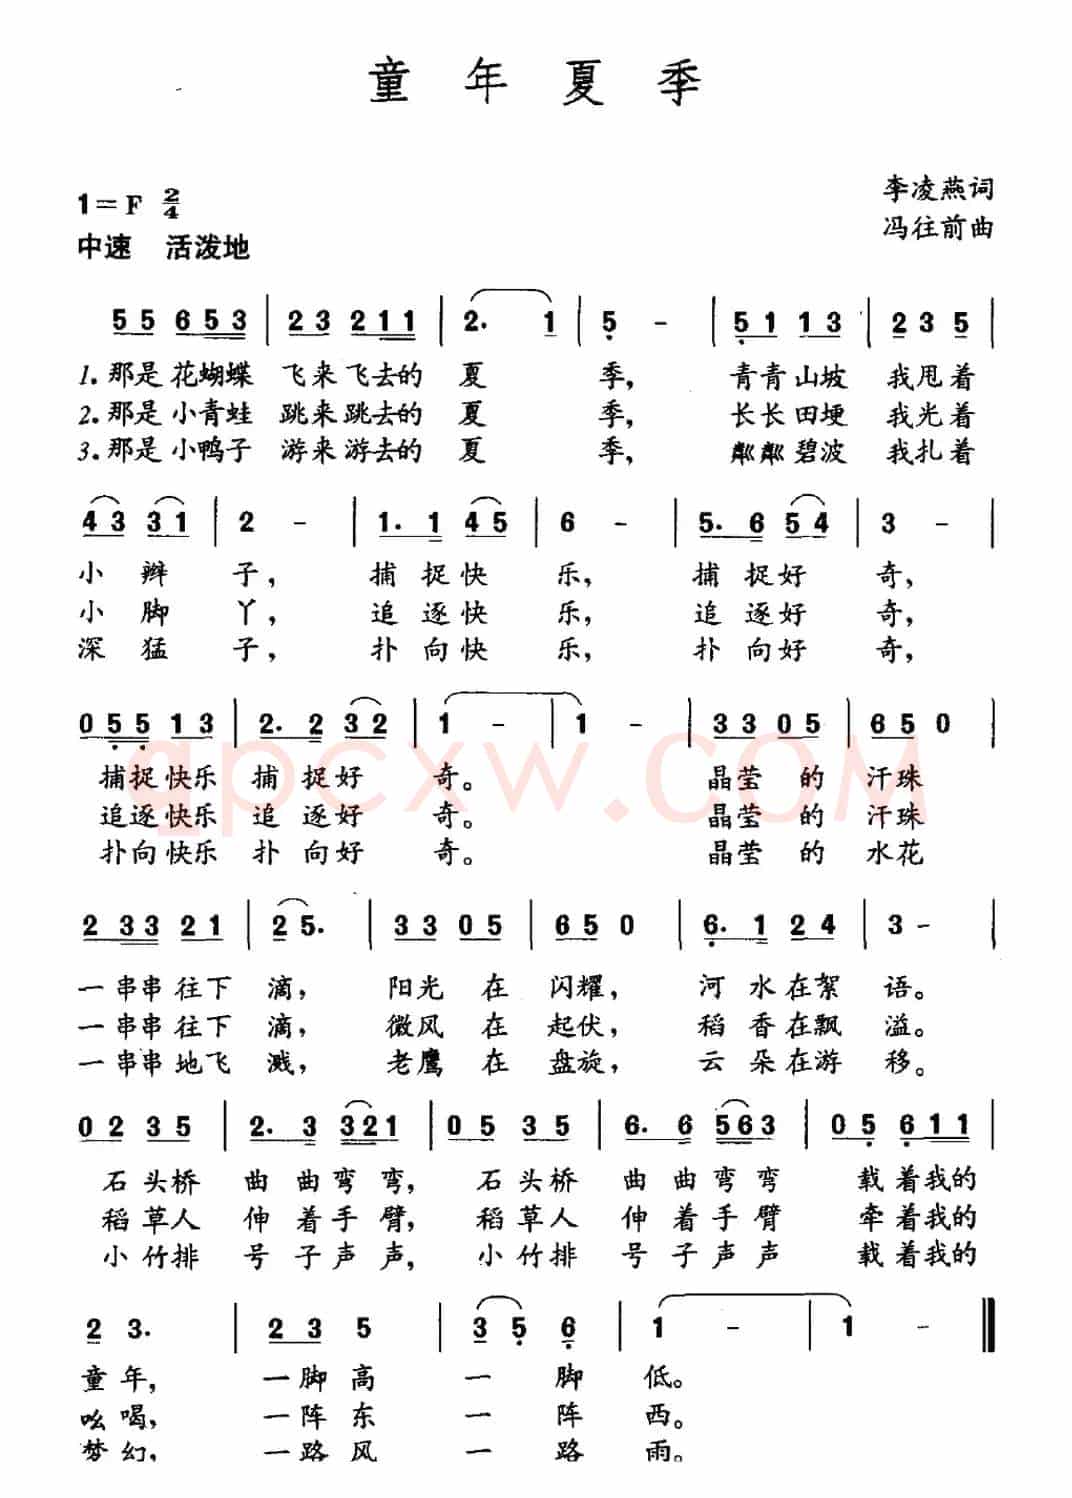 童年夏季
1=F 2/4
李凌燕词
中速 活泼地
冯往前曲
55 653 | 23 211 | 2. 1 | 5 - | 51 13 | 23 5 |
1.那是花蝴蝶 飞来飞去的 夏 季, 青青山坡 我甩着
2.那是小青蛙 跳来跳去的 夏 季, 长长田埂 我光着
3.那是小鸭子 游来游去的 夏 季, 粼粼碧波 我扎着
43 31 | 2 - | 1. 1 45 | 6 - | 5. 6 54 | 3 - |
小 辫 子, 捕 捉 快 乐, 捕 捉 好 奇,
小 脚 丫, 追 逐 快 乐, 追 逐 好 奇,
深 猛 子, 扑 向 快 乐, 扑 向 好 奇,
055 13 | 2. 2 32 | 1 - | 1 - | 33 05 | 650 |
捕捉快乐 捕 捉 好 奇。 晶莹 的 汗珠
追逐快乐 追 逐 好 奇。 晶莹 的 汗珠
扑向快乐 扑 向 好 奇。 晶莹 的 水花
qpcxw.COM
2 33 21 | 25. | 33 05 | 650 | 6. 1 24 | 3 - |
一串串往下 滴, 阳光 在 闪耀, 河 水在絮 语。
一串串往下 滴, 微风 在 起伏, 稻 香在飘 溢。
一串串地飞 溅, 老鹰 在 盘旋, 云 朵在游 移。
02 35 | 2. 3 321 | 05 35 | 6. 6 563 | 05 611 |
石头桥 曲 曲弯弯, 石头桥 曲 曲弯弯 载着我的
稻草人 伸 着手臂, 稻草人 伸 着手臂 牵着我的
小竹排 号 子声声, 小竹排 号 子声声 载着我的
2 3. | 23 5 | 3 5 6 | 1 - | 1 - ‖
童年, 一脚高 一 脚 低。
吆喝, 一阵东 一 阵 西。
梦幻, 一路风 一 路 雨。